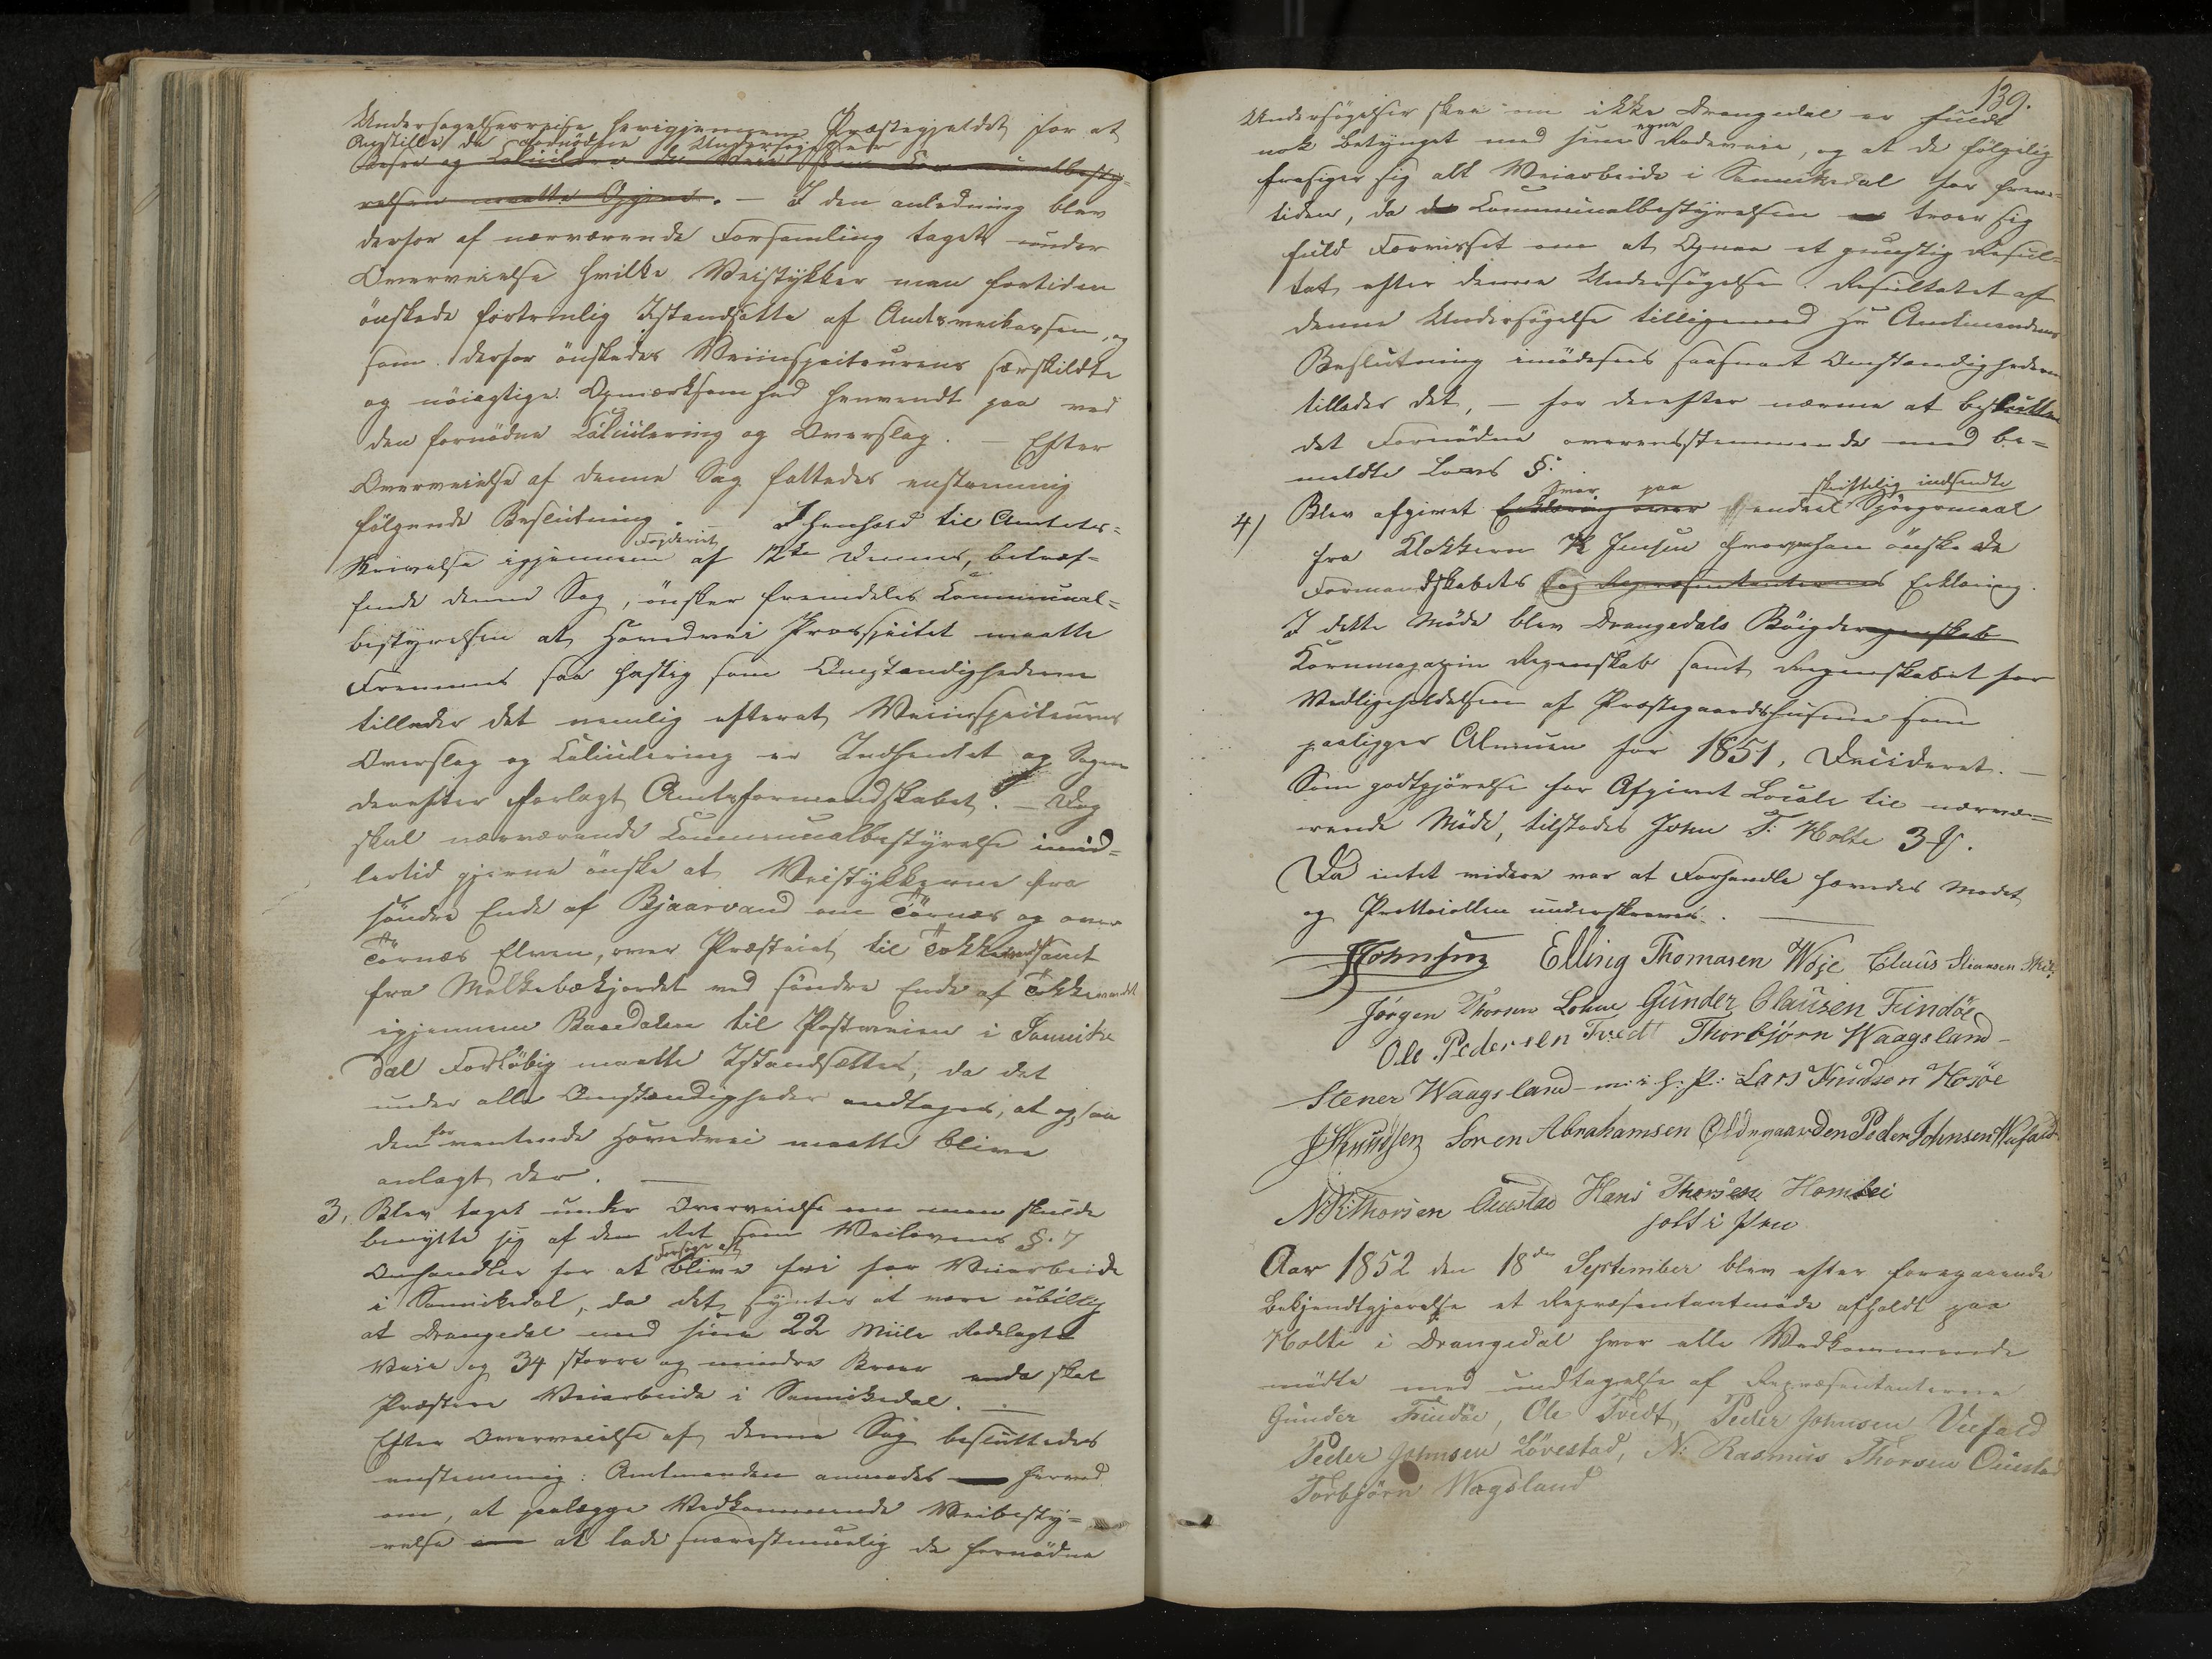 Undersøgelsesreise herigjennem Præstegjeldet for at
Anstille de fornødne Undersøgelser
Befare og Calculere de Veie som Communalbesty-
relsen maatte Opgive. — I den anledning blev
derfor af nærværende Forsamling taget under
Overveielse hvilke Veistykker man fortiden
önskede fortrinlig Istandsatte af Amtsveikassen, og
som derfor önskedes Veiinspecteurens særskildte
og nöiagtige Opmærksomhed henvendt paa ved
den fornödne Calculering og Overslag. — Efter
Overveielse af denne Sag fattedes enstemmig
fölgende Beslutning. — I henhold til Amtets-
Fogderiet
Skrivelse igjennem af 12te Dennes, betræf-
fende denne Sag, önsker fremdeles Communal-
bestyrelsen at Hovedvei Prosjectet maatte
Fremmes saa hastig som Omstændighederne
tillader det nemlig efterat Veiinspecteurens
Overslag og Calculering er Indhentet og Sagen
derefter forlagt Amtsformandskabet. — Dog
skal nærværende Communalbestyrelse imid-
lertid gjerne önske at Veistykkerne fra
söndre Ende af Bjaarvand om Törnæs og over
Törnæs Elven, over Præsteiet til Tokke samt
fra Molkebækjordet ved söndre Ende af Tokkevandet
igjennem Baasdalen til Postveien i Sannike
dal Forlöbig maatte Istandsættes, da det
under alle Omstændigheder andtages, at ogsaa
for
den ventende Hovedvei maatte blive
anlagt der. —
3, Blev taget under Overveielse om man skulde
benytte sig af den Ret som Veilovens §. 7
Forsøge at
Omhandler for at blive fri for Veiarbeide
i Sannikedal, da det syntes at være ubillig
at Drangedal med sine 22 Miile Rodelagte
Veie og 34 större og mindre Broer enda skal
Præstere Veiarbeide i Sannikedal. —
Efter Overveielse af denne Sag besluttedes
enstemmig: Amtmanden anmodes herved
om, at paalægge Vedkommende Veibesty-
relse om at lade snarestmuelig de fornødne
139.
Undersögelser skee om ikke Drangedal er fuldt
egne
nok betynget med sine Rodeveie, og at de fölgelig
frasiger sig alt Veiarbeide i Sannikedal for frem-
tiden, da de Communalbestyrelsen troer sig
fuld Forvisset om at Opnaa et gunstig Resul-
tat efter denne Undersögelse. Resultatet af
denne Undersögelse tilligemed Hr Amtmandens
Beslutning imödesees saasnart Omstændighederne
tillader det, — for derefter nærme at beslutte
det Fornödne overensstemmende med be-
meldte Lovs §.
Svar paa skriftelig indsendte
4) Blev afgivet Erklæring over Spörgsmaal
fra Klokkeren K Jensen hvorpaa han önskede
Formandskabets og Repræsentanternes Erklæring.
I dette Möde blev Drangedals Böigderegnskab
Kornmagazin Regnskab samt Regnskabet for
Vedligeholdelsen af Præstegaardshusene som
paaligger Almuen for 1851, Decideret. —
Som godtgjörelse for Afgivet Locale til nærvæ-
rende Möde, tilstodes John T: Holte 3
Da intet videre var at Forhandle hævedes Mödet
og Prottocollen underskreves. —
JJohnsen Elling Thomasen Woje Claus Stiansen
Jörgen Thorsen Lohne Gunder Clausen Findöe
Ole Pedersen Tvedt Thorbjörn Waagsland
Stener Waagsland m: i h: P: Lars Knudsen Hosöe
JKnudsen Sören Abrahamsen Oldegaarden Peder Johnsen Wefald
N:RThorsen Oustad Hans Thorsen Homlei
holt i Pen
Aar 1852 den 18de September blev efter foregaaende
bekjendtgjörelse et Repræsentantmöde afholdt paa
Holte i Drangedal hvor alle Vedkommende
mödte med undtagelse af Repræsentanterne
Gunder Findöe, Ole Tvedt, Peder Johnsen Vefald
Peder Johnsen Lövestad, N: Rasmus Thorsen Oustad
Torbjörn Wagsland